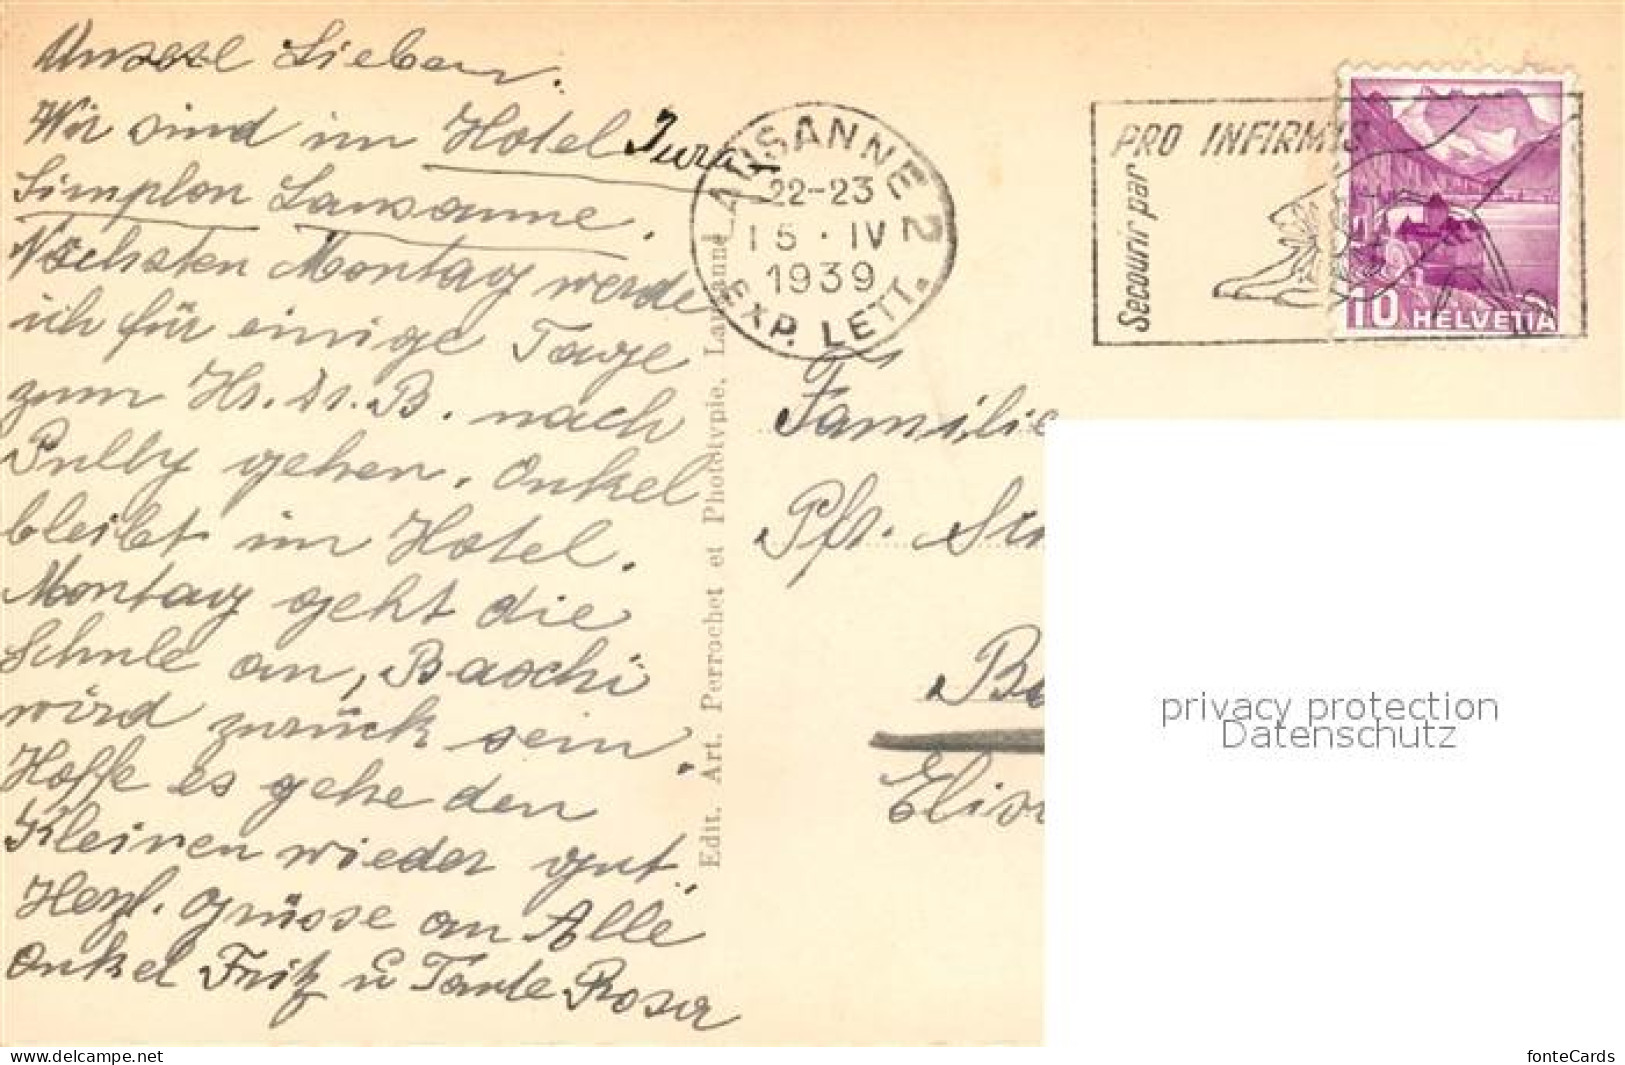 Unsere Lieben.
Wir sind im Hotel Jura
Simplon Lausanne.
Nächsten Montag werde
ich für einige Tage
zum Hr. Dr. B. nach
Pully gehen. Onkel
bleibt im Hotel.
Montag geht die
Schule an, Baschi
wird zurück sein.
Hoffe es gehe den
Kleinen wieder gut.
Herzl. Grüsse an Alle
Onkel Fritz u Tante Rosa
Edit. Art. Perrochet et Phototypie, Lausanne
LAUSANNE 2
22-23
15.IV
1939
EXP. LETT.
PRO INFIRMIS
Secourir par
10 HELVETIA
Familie
Pfr.
privacy protection
Datenschutz
www.delcampe.net
fonteCards